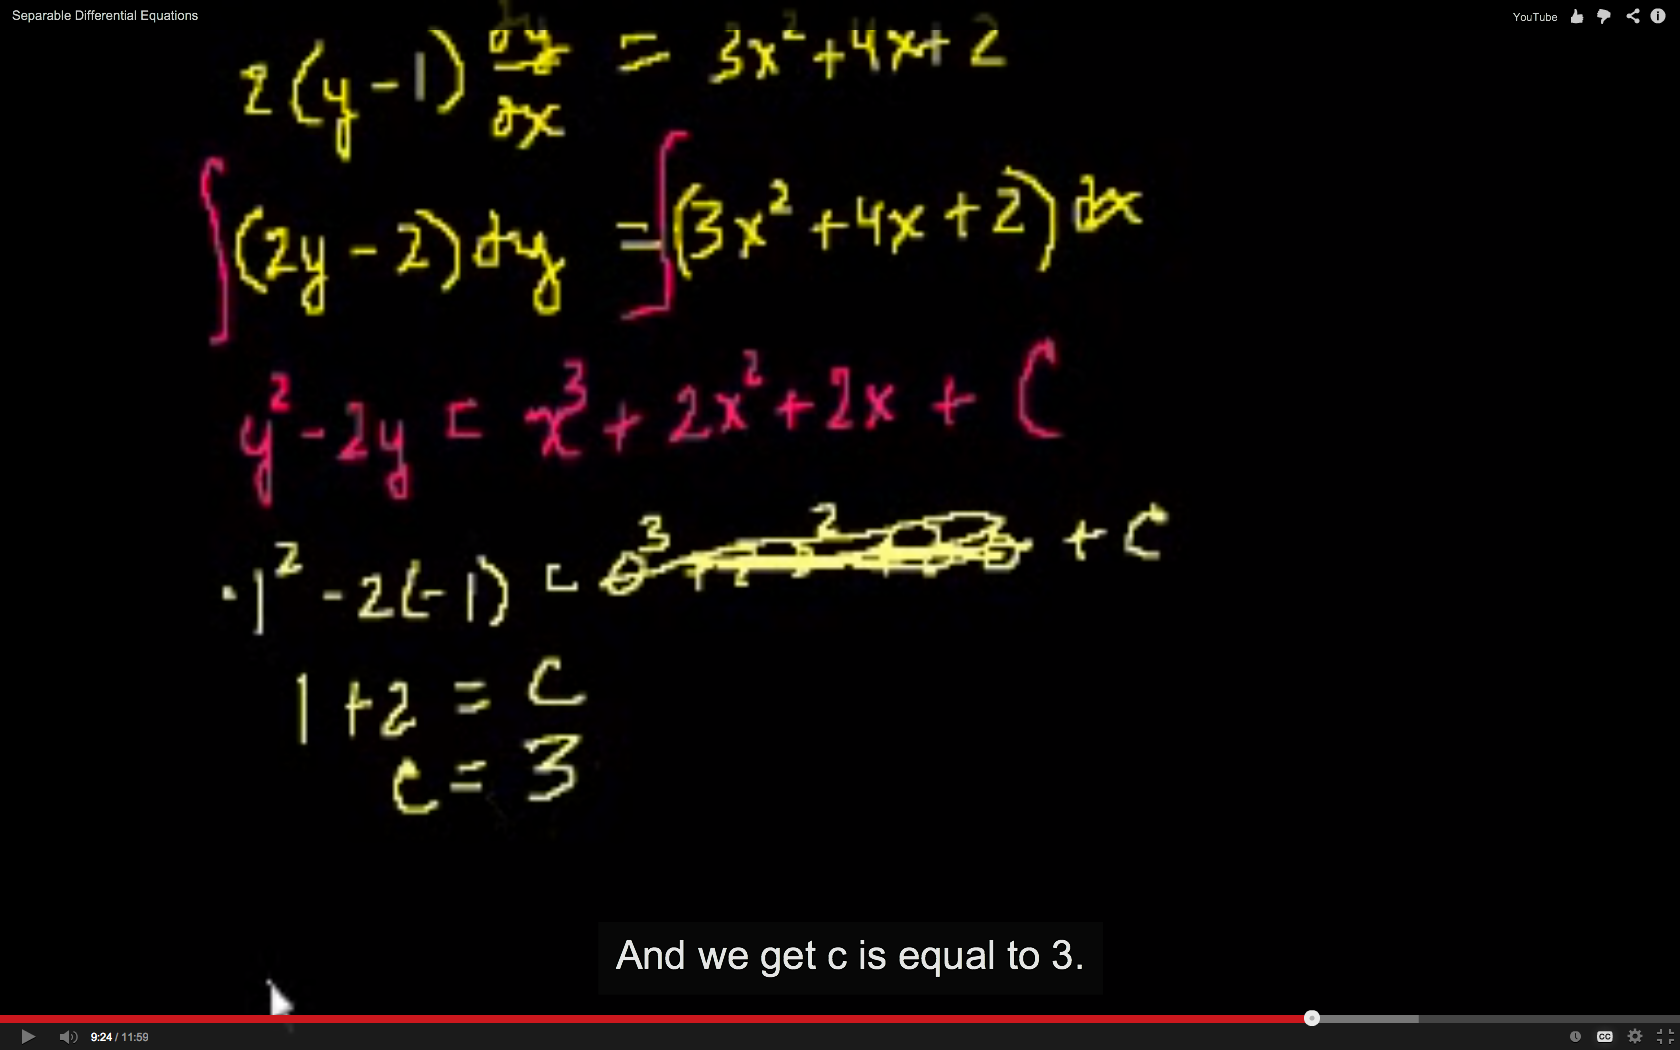 Separable Differential Equations
YouTube
2(y-1) dy/dx = 3x² + 4x + 2
∫(2y - 2) dy = ∫(3x² + 4x + 2) dx
y² - 2y = x³ + 2x² + 2x + C
-1² - 2(-1) = 0³ + 2 · 0² + 2 · 0 + C
1 + 2 = C
C = 3
And we get c is equal to 3.
9:24 / 11:59
CC